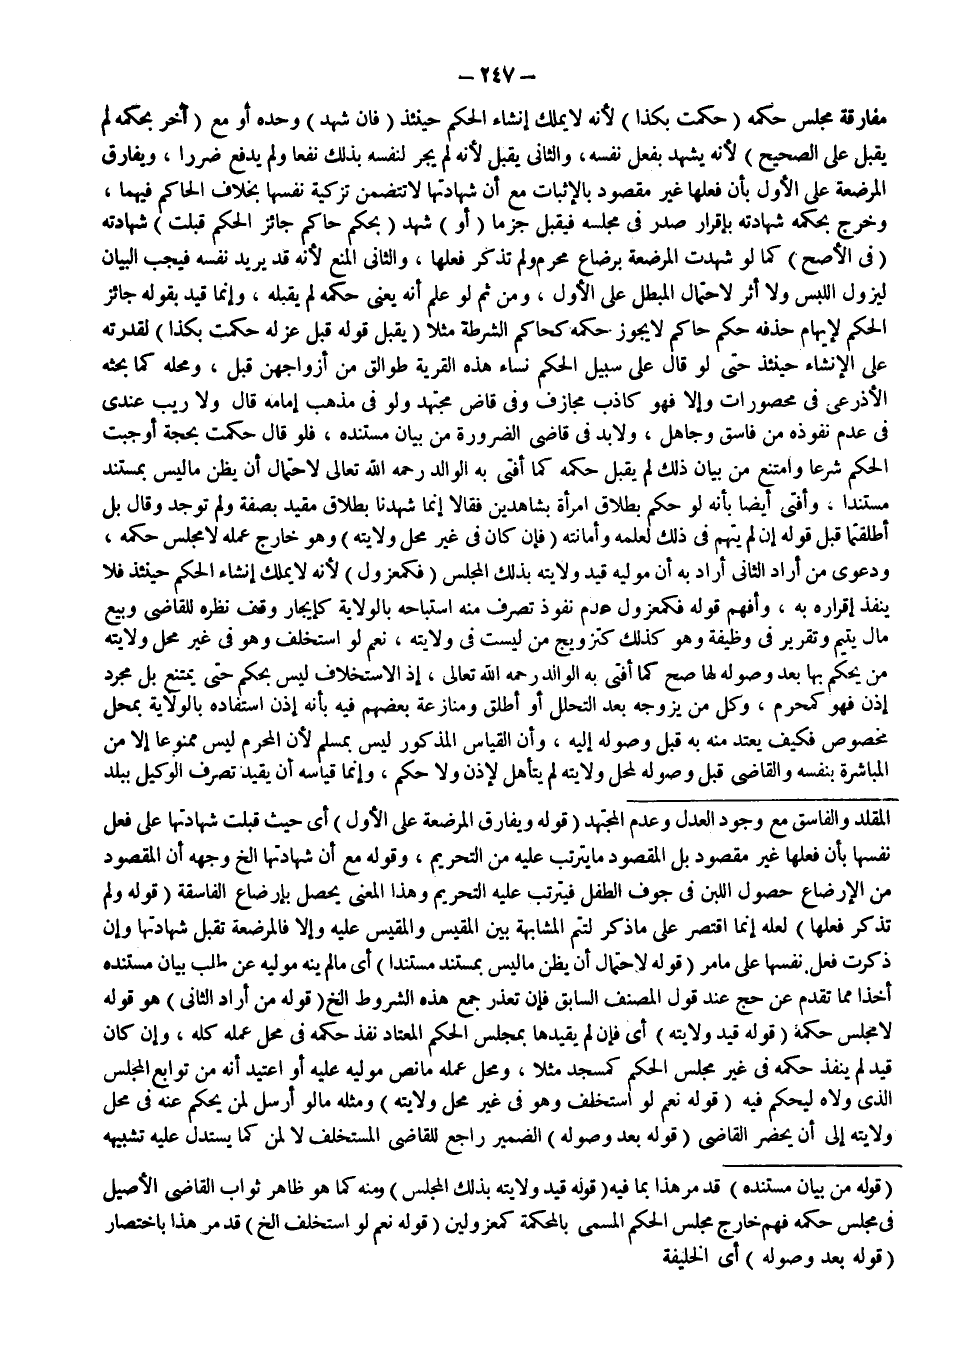 – ٢٤٧ –
مفارقة مجلس حكمه ( حكمت بكذا ) لأنه لايملك إنشاء الحكم حينئذ ( فان شهد ) وحده أو مع ( آخر بحكمه لم
يقبل على الصحيح ) لأنه يشهد بفعل نفسه، والثانى يقبل لأنه لم يجر لنفسه بذلك نفعا ولم يدفع ضررا ، ويفارق
المرضعة على الأول بأن فعلها غير مقصود بالإثبات مع أن شهادتها لاتتضمن تزكية نفسها بخلاف الحاكم فيهما ،
وخرج بحكمه شهادته بإقرار صدر فى مجلسه فيقبل جزما ( أو ) شهد ( بحكم حاكم جائز الحكم قبلت ) شهادته
( فى الأصح ) كما لو شهدت المرضعة برضاع محرم ولم تذكر فعلها ، والثانى المنع لأنه قد يريد نفسه فيجب البيان
ليزول اللبس ولا أثر لاحتمال المبطل على الأول ، ومن ثم لو علم أنه يعنى حكمه لم يقبله ، وإنما قيد بقوله جائز
الحكم لإيهام حذفه حكم حاكم لايجوز حكمه كحاكم الشرطة مثلا ( يقبل قوله قبل عزله حكمت بكذا ) لقدرته
على الإنشاء حينئذ حتى لو قال على سبيل الحكم نساء هذه القرية طوالق من أزواجهن قبل ، ومحله كما بحثه
الأذرعى فى محصورات وإلا فهو كاذب مجازف وفى قاض مجتهد ولو فى مذهب إمامه قال ولا ريب عندى
فى عدم نفوذه من فاسق وجاهل ، ولابد فى قاضى الضرورة من بيان مستنده ، فلو قال حكمت بحجة أوجبت
الحكم شرعا وامتنع من بيان ذلك لم يقبل حكمه كما أفتى به الوالد رحمه الله تعالى لاحتمال أن يظن ماليس بمستند
مستندا ، وأفتى أيضا بأنه لو حكم بطلاق امرأة بشاهدين فقالا إنما شهدنا بطلاق مقيد بصفة ولم توجد وقال بل
أطلقتما قبل قوله إن لم يتهم فى ذلك لعلمه وأمانته ( فإن كان فى غير محل ولايته ) وهو خارج عمله لامجلس حكمه ،
ودعوى من أراد الثانى أراد به أن موليه قيد ولايته بذلك المجلس ( فكمعزول ) لأنه لايملك إنشاء الحكم حينئذ فلا
ينفذ إقراره به ، وأفهم قوله فكمعزول عدم نفوذ تصرف منه استباحه بالولاية كإيجار وقف نظره للقاضى وبيع
مال يتيم وتقرير فى وظيفة وهو كذلك كتزويج من ليست فى ولايته ، نعم لو استخلف وهو فى غير محل ولايته
من يحكم بها بعد وصوله لها صح كما أفتى به الوالد رحمه الله تعالى ، إذ الاستخلاف ليس بحكم حتى يمتنع بل مجرد
إذن فهو كمحرم ، وكل من يزوجه بعد التحلل أو أطلق ومنازعة بعضهم فيه بأنه إذن استفاده بالولاية بمحل
مخصوص فكيف يعتد منه به قبل وصوله إليه ، وأن القياس المذكور ليس بمسلم لأن المحرم ليس ممنوعا إلا من
المباشرة بنفسه والقاضى قبل وصوله لمحل ولايته لم يتأهل لإذن ولا حكم ، وإنما قياسه أن يقيد تصرف الوكيل ببلد
المقلد والفاسق مع وجود العدل وعدم المجتهد ( قوله ويفارق المرضعة على الأول ) أى حيث قبلت شهادتها على فعل
نفسها بأن فعلها غير مقصود بل المقصود مايترتب عليه من التحريم ، وقوله مع أن شهادتها الخ وجهه أن المقصود
من الإرضاع حصول اللبن فى جوف الطفل فيترتب عليه التحريم وهذا المعنى يحصل بإرضاع الفاسقة ( قوله ولم
تذكر فعلها ) لعله إنما اقتصر على ماذكر لتتم المشابهة بين المقيس والمقيس عليه وإلا فالمرضعة تقبل شهادتها وإن
ذكرت فعل نفسها على مامر ( قوله لاحتمال أن يظن ماليس بمستند مستندا ) أى مالم ينه موليه عن طلب بيان مستنده
أخذا مما تقدم عن حج عند قول المصنف السابق فإن تعذر جمع هذه الشروط الخ ( قوله من أراد الثانى ) هو قوله
لامجلس حكمه ( قوله قيد ولايته ) أى فإن لم يقيدها بمجلس الحكم المعتاد نفذ حكمه فى محل عمله كله ، وإن كان
قيد لم ينفذ حكمه فى غير مجلس الحكم كمسجد مثلا ، ومحل عمله مانص موليه عليه أو اعتيد أنه من توابع المجلس
الذى ولاه ليحكم فيه ( قوله نعم لو استخلف وهو فى غير محل ولايته ) ومثله مالو أرسل لمن يحكم عنه فى محل
ولايته إلى أن يحضر القاضى ( قوله بعد وصوله ) الضمير راجع للقاضى المستخلف لا لمن كما يستدل عليه تشبيهه
( قوله من بيان مستنده ) قد مر هذا بما فيه ( قوله قيد ولايته بذلك المجلس ) ومنه كما هو ظاهر ثواب القاضى الأصيل
فى مجلس حكمه فهم خارج مجلس الحكم المسمى بالمحكمة كمعزولين ( قوله نعم لو استخلف الخ ) قد مر هذا باختصار
( قوله بعد وصوله ) أى الخليفة